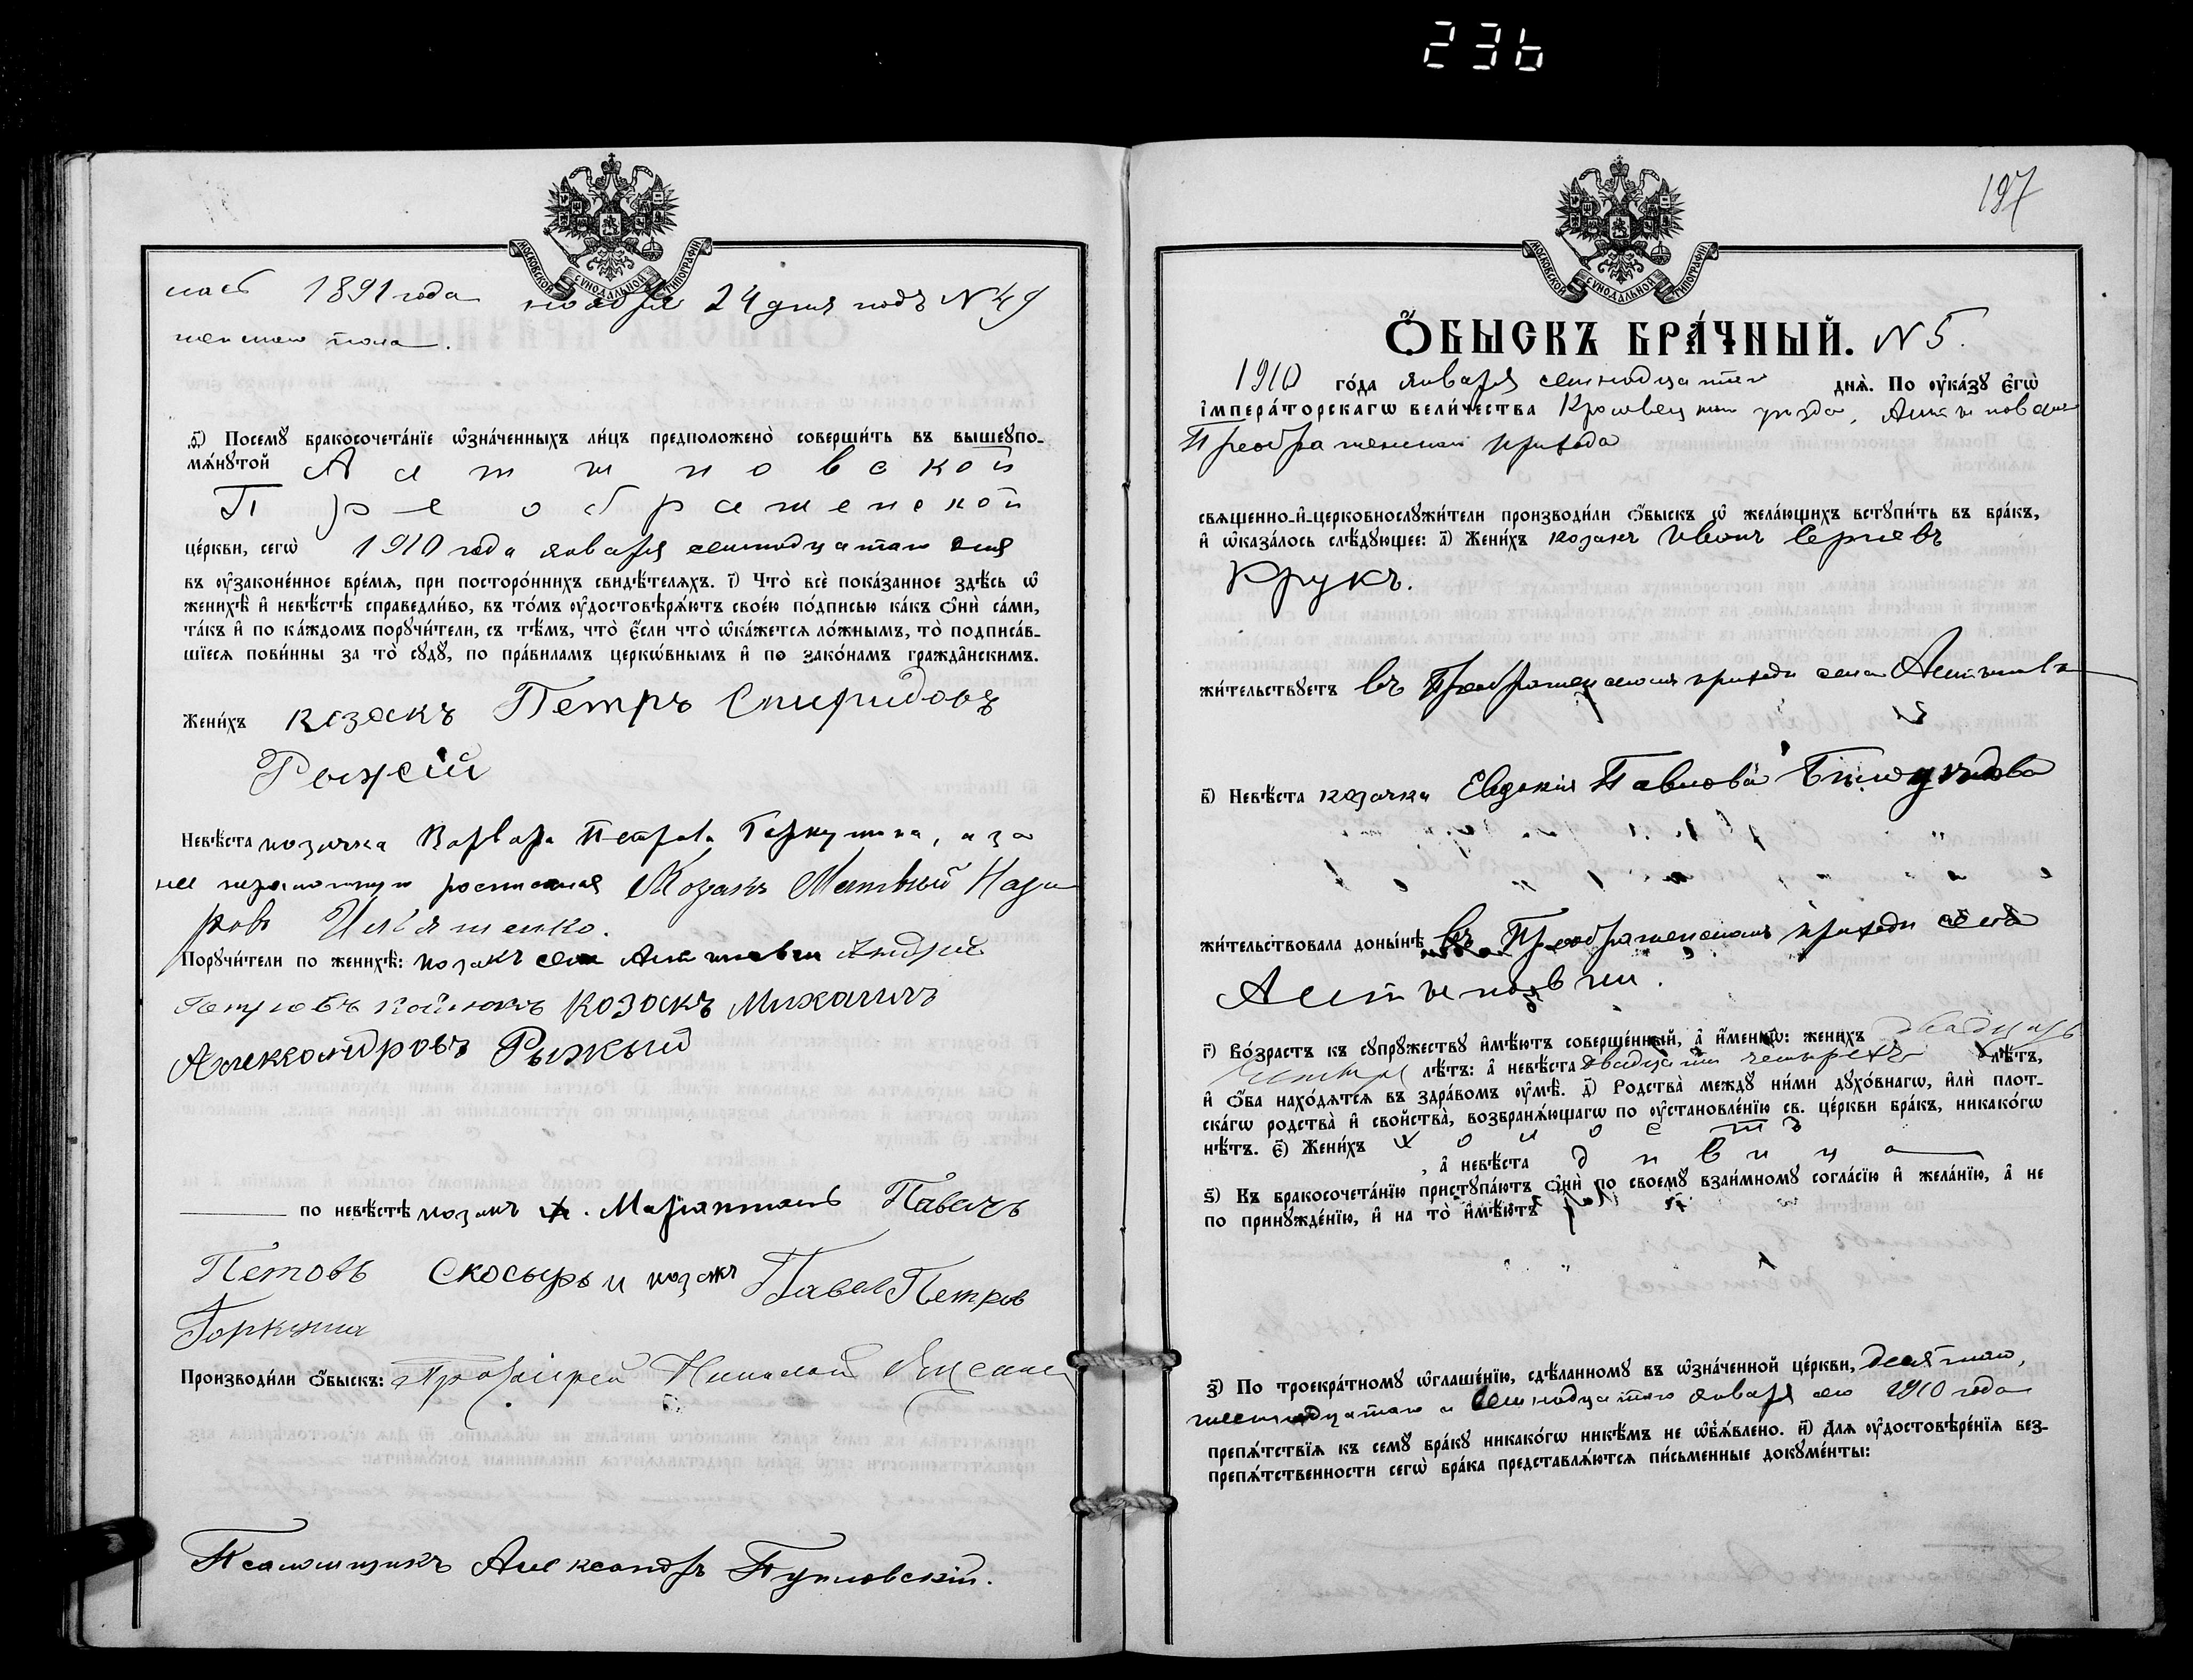 236
МОСКОВСКОЙ СѴНОДАЛЬНОЙ ТИПОГРАФІИ
1891 года ноября 24 дня подъ N 49
женскаго пола.
д҃) Посемꙋ бракосочета́нїе ѡ҆зна́ченныхъ ли́цъ предположено̀ соверши́ть въ вышеꙋпо-
мѧ́нꙋтой Алтыновской
Преображенской
це́ркви, сегѡ̀ 1910 года января семнадцатаго дня
въ ᲂу҆законе́нное вре́мѧ, при посторо́ннихъ свидѣ́телѧхъ. і҃) Что̀ всѐ пока́занное здѣ́сь ѡ҆
женихѣ̀ и҆ невѣ́стѣ справедли́во, въ то́мъ ᲂу҆достовѣрѧ́ютъ свое́ю по́дписью ка́къ ѻ҆нѝ са́ми,
та́къ и҆ по ка́ждомъ порꙋчи́тели, съ тѣ́мъ, что̀ є҆́сли что̀ ѡ҆ка́жетсѧ ло́жнымъ, то̀ подписа́в-
шїесѧ пови́нны за то̀ сꙋдꙋ̀, по пра́виламъ церко́внымъ и҆ по зако́намъ гражда̑нскимъ.
Жени́хъ козакъ Петръ Спиридовъ
Рыжій
Невѣ́ста козачка Варвара Петрова Горкуша, а за
нее неграмотную росписался Козакъ Матвей Наза
ровъ Ильяшенко.
Порꙋчи́тели по женихѣ̀: козакъ села Алтыновки Андрей
козакъ Михаилъ
Александровъ Рыжый
по невѣ́стѣ козакъ Павелъ
Петовъ Скосырь и козакъ Павел Петров
Горкуша
Производи́ли ѻ҆́быскъ: Протоіерей Николай
Псаломщикъ Александръ Пуиловскій.
197
МОСКОВСКОЙ СѴНОДАЛЬНОЙ ТИПОГРАФІИ
Ѻ҆́БЫСКЪ БРА́ЧНЫЙ. N 5.
1910 го́да января семнадцатаго днѧ̀. По ᲂу҆ка́зꙋ є҆гѡ̀
і҆мпера́торскагѡ вели́чества Кролевец. уезда, Алтыновской
Преображенской прихода
свѧщенно-и҆-церковнослꙋжи́тели производи́ли ѻ҆́быскъ ѡ҆ жела́ющихъ встꙋпи́ть въ бра́къ,
и҆ ѡ҆каза́лось слѣ́дꙋющее: а҃) Жени́хъ козакъ Иванъ Сергіевъ
Крукъ.
жи́тельствꙋетъ въ Преображенскомъ приходе села Алтыновк
и
в҃) Невѣ́ста козачка Евдокія Павлова
жи́тельствовала доны́нѣ въ Преображенскомъ приходе села
Алтыновки.
г҃) Во́зрастъ къ сꙋпрꙋ́жествꙋ и҆мѣ́ютъ соверше́нный, а҆ и҆́меннѡ: жени́хъ двадцать
четыре лѣ́тъ: а҆ невѣ́ста двадцати четырехъ лѣ́тъ,
и҆ ѻ҆́ба нахо́дѧтсѧ въ здра́вомъ ᲂу҆мѣ̀. д҃) Родства̀ междꙋ ни́ми дꙋхо́внагѡ, и҆лѝ плот-
ска́гѡ родства̀ и҆ сво́йства, возбранѧ́ющагѡ по ᲂу҆становле́нїю св. це́ркви бра́къ, никако́гѡ
нѣ́тъ. є҃) Жени́хъ холостъ
, а҆ невѣ́ста дивица
ѕ҃) Къ бракосочета́нїю пристꙋпа́ютъ ѻ҆нѝ по своемꙋ̀ взаи́мномꙋ согла́сїю и҆ жела́нїю, а҆ не
по принꙋжде́нїю, и҆ на то̀ и҆мѣ́ютъ
з҃) По троекра́тномꙋ ѡ҆глаше́нїю, сдѣ́ланномꙋ въ ѡ҆зна́ченной це́ркви, десятаго,
шестнадцатаго и семнадцатаго января сего 1910 года
препѧ́тствїѧ къ семꙋ̀ бра́кꙋ никако́гѡ никѣ́мъ не ѡ҆б̾ѧ́влено. и҃) Для ᲂу҆достовѣре́нїѧ без-
препѧ́тственности сегѡ̀ бра́ка представлѧ́ютсѧ пи́сьменные докꙋме́нты: